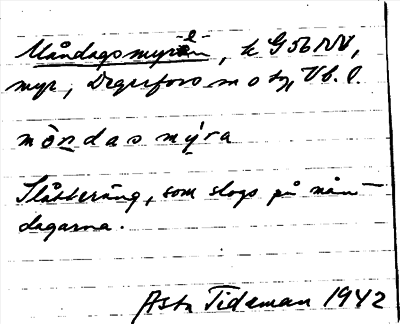 Måndagsmyren, k G56NV,
myr, Degerfors sn o hg, Vb. l.
mòndasmýra
Slåtteräng, som slogs på mån-
dagarna.
Asta Tideman 1942